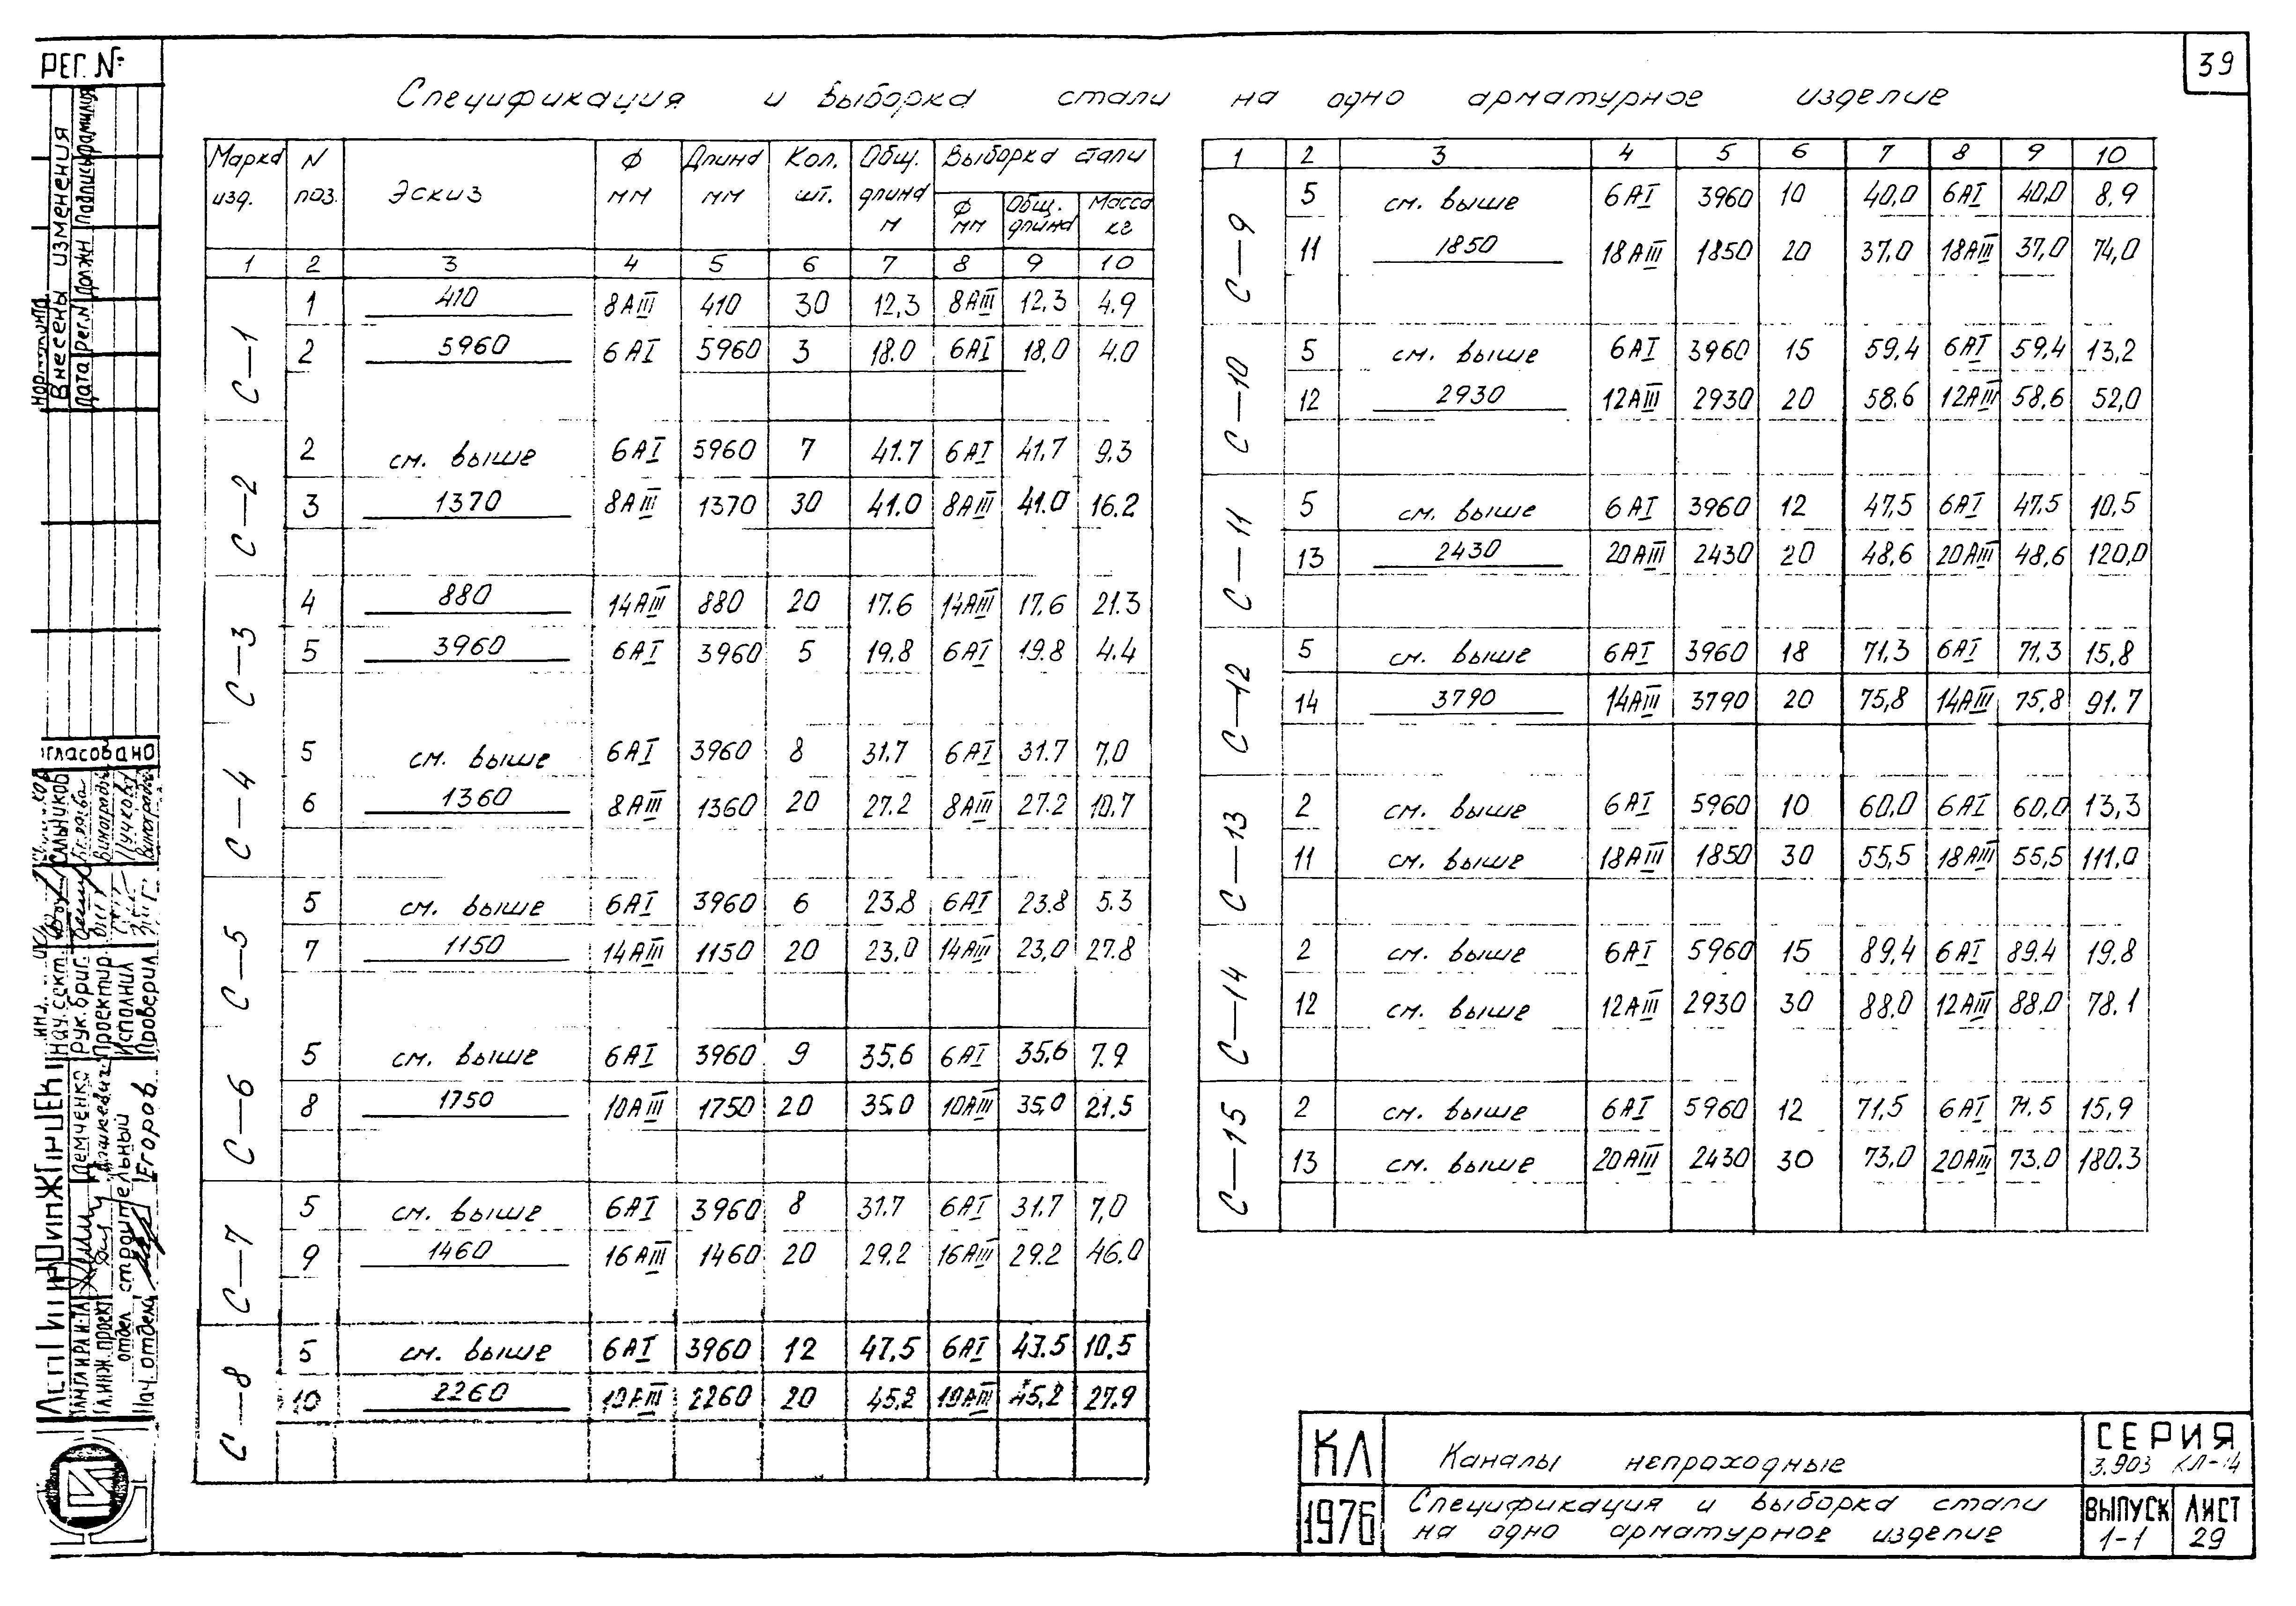 39
РЕГ. №
Спецификация и выборка стали на одно арматурное изделие
Марка изд. N поз. Эскиз Ф мм Длина мм Кол. шт. Общ. длина м Выборка стали
Ф мм Общ. длина Масса кг
1 2 3 4 5 6 7 8 9 10
С-1
1 410 8АIII 410 30 12,3 8АIII 12.3 4.9
2 5960 6АI 5960 3 18.0 6АI 18,0 4.0
С-2
2 см. выше 6АI 5960 7 41.7 6АI 41.7 9.3
3 1370 8АIII 1370 30 41.0 8АIII 41.0 16.2
С-3
4 880 14АIII 880 20 17.6 14АIII 17.6 21.3
5 3960 6АI 3960 5 19.8 6АI 19.8 4.4
С-4
5 см. выше 6АI 3960 8 31.7 6АI 31.7 7,0
6 1360 8АIII 1360 20 27.2 8АIII 27.2 10.7
С-5
5 см. выше 6АI 3960 6 23.8 6АI 23.8 5.3
7 1150 14АIII 1150 20 23,0 14АIII 23,0 27.8
С-6
5 см. выше 6АI 3960 9 35,6 6АI 35,6 7.9
8 1750 10АIII 1750 20 35.0 10АIII 35,0 21.5
С-7
5 см. выше 6АI 3960 8 31.7 6АI 31.7 7,0
9 1460 16АIII 1460 20 29.2 16АIII 29.2 46.0
С-8
5 см. выше 6АI 3960 12 47,5 6АI 47.5 10.5
10 2260 10АIII 2260 20 45,2 10АIII 45,2 27.9
1 2 3 4 5 6 7 8 9 10
С-9
5 см. выше 6АI 3960 10 40,0 6АI 40,0 8,9
11 1850 18АIII 1850 20 37,0 18АIII 37,0 74,0
С-10
5 см. выше 6АI 3960 15 59,4 6АI 59,4 13,2
12 2930 12АIII 2930 20 58.6 12АIII 58,6 52,0
С-11
5 см. выше 6АI 3960 12 47,5 6АI 47.5 10,5
13 2430 20АIII 2430 20 48,6 20АIII 48,6 120,0
С-12
5 см. выше 6АI 3960 18 71,3 6АI 71,3 15,8
14 3790 14АIII 3790 20 75,8 14АIII 75,8 91.7
С-13
2 см. выше 6АI 5960 10 60,0 6АI 60,0 13,3
11 см. выше 18АIII 1850 30 55,5 18АIII 55,5 111,0
С-14
2 см. выше 6АI 5960 15 89,4 6АI 89.4 19.8
12 см. выше 12АIII 2930 30 88,0 12АIII 88,0 78.1
С-15
2 см. выше 6АI 5960 12 71,5 6АI 71.5 15,9
13 см. выше 20АIII 2430 30 73,0 20АIII 73.0 180.3
КЛ Каналы непроходные СЕРИЯ
3.903 КЛ-14
1976 Спецификация и выборка стали
на одно арматурное изделие
ВЫПУСК 1-1 ЛИСТ 29
Внесены изменения
Дата Рег.N Должн Подпись Фамилия
нач. сект. Сальников
Рук. бриг.
Проектир.
Исполнил
Проверил
Демченко
Гл. инж. проект
отдел строительный
Нач. отдела Егоров